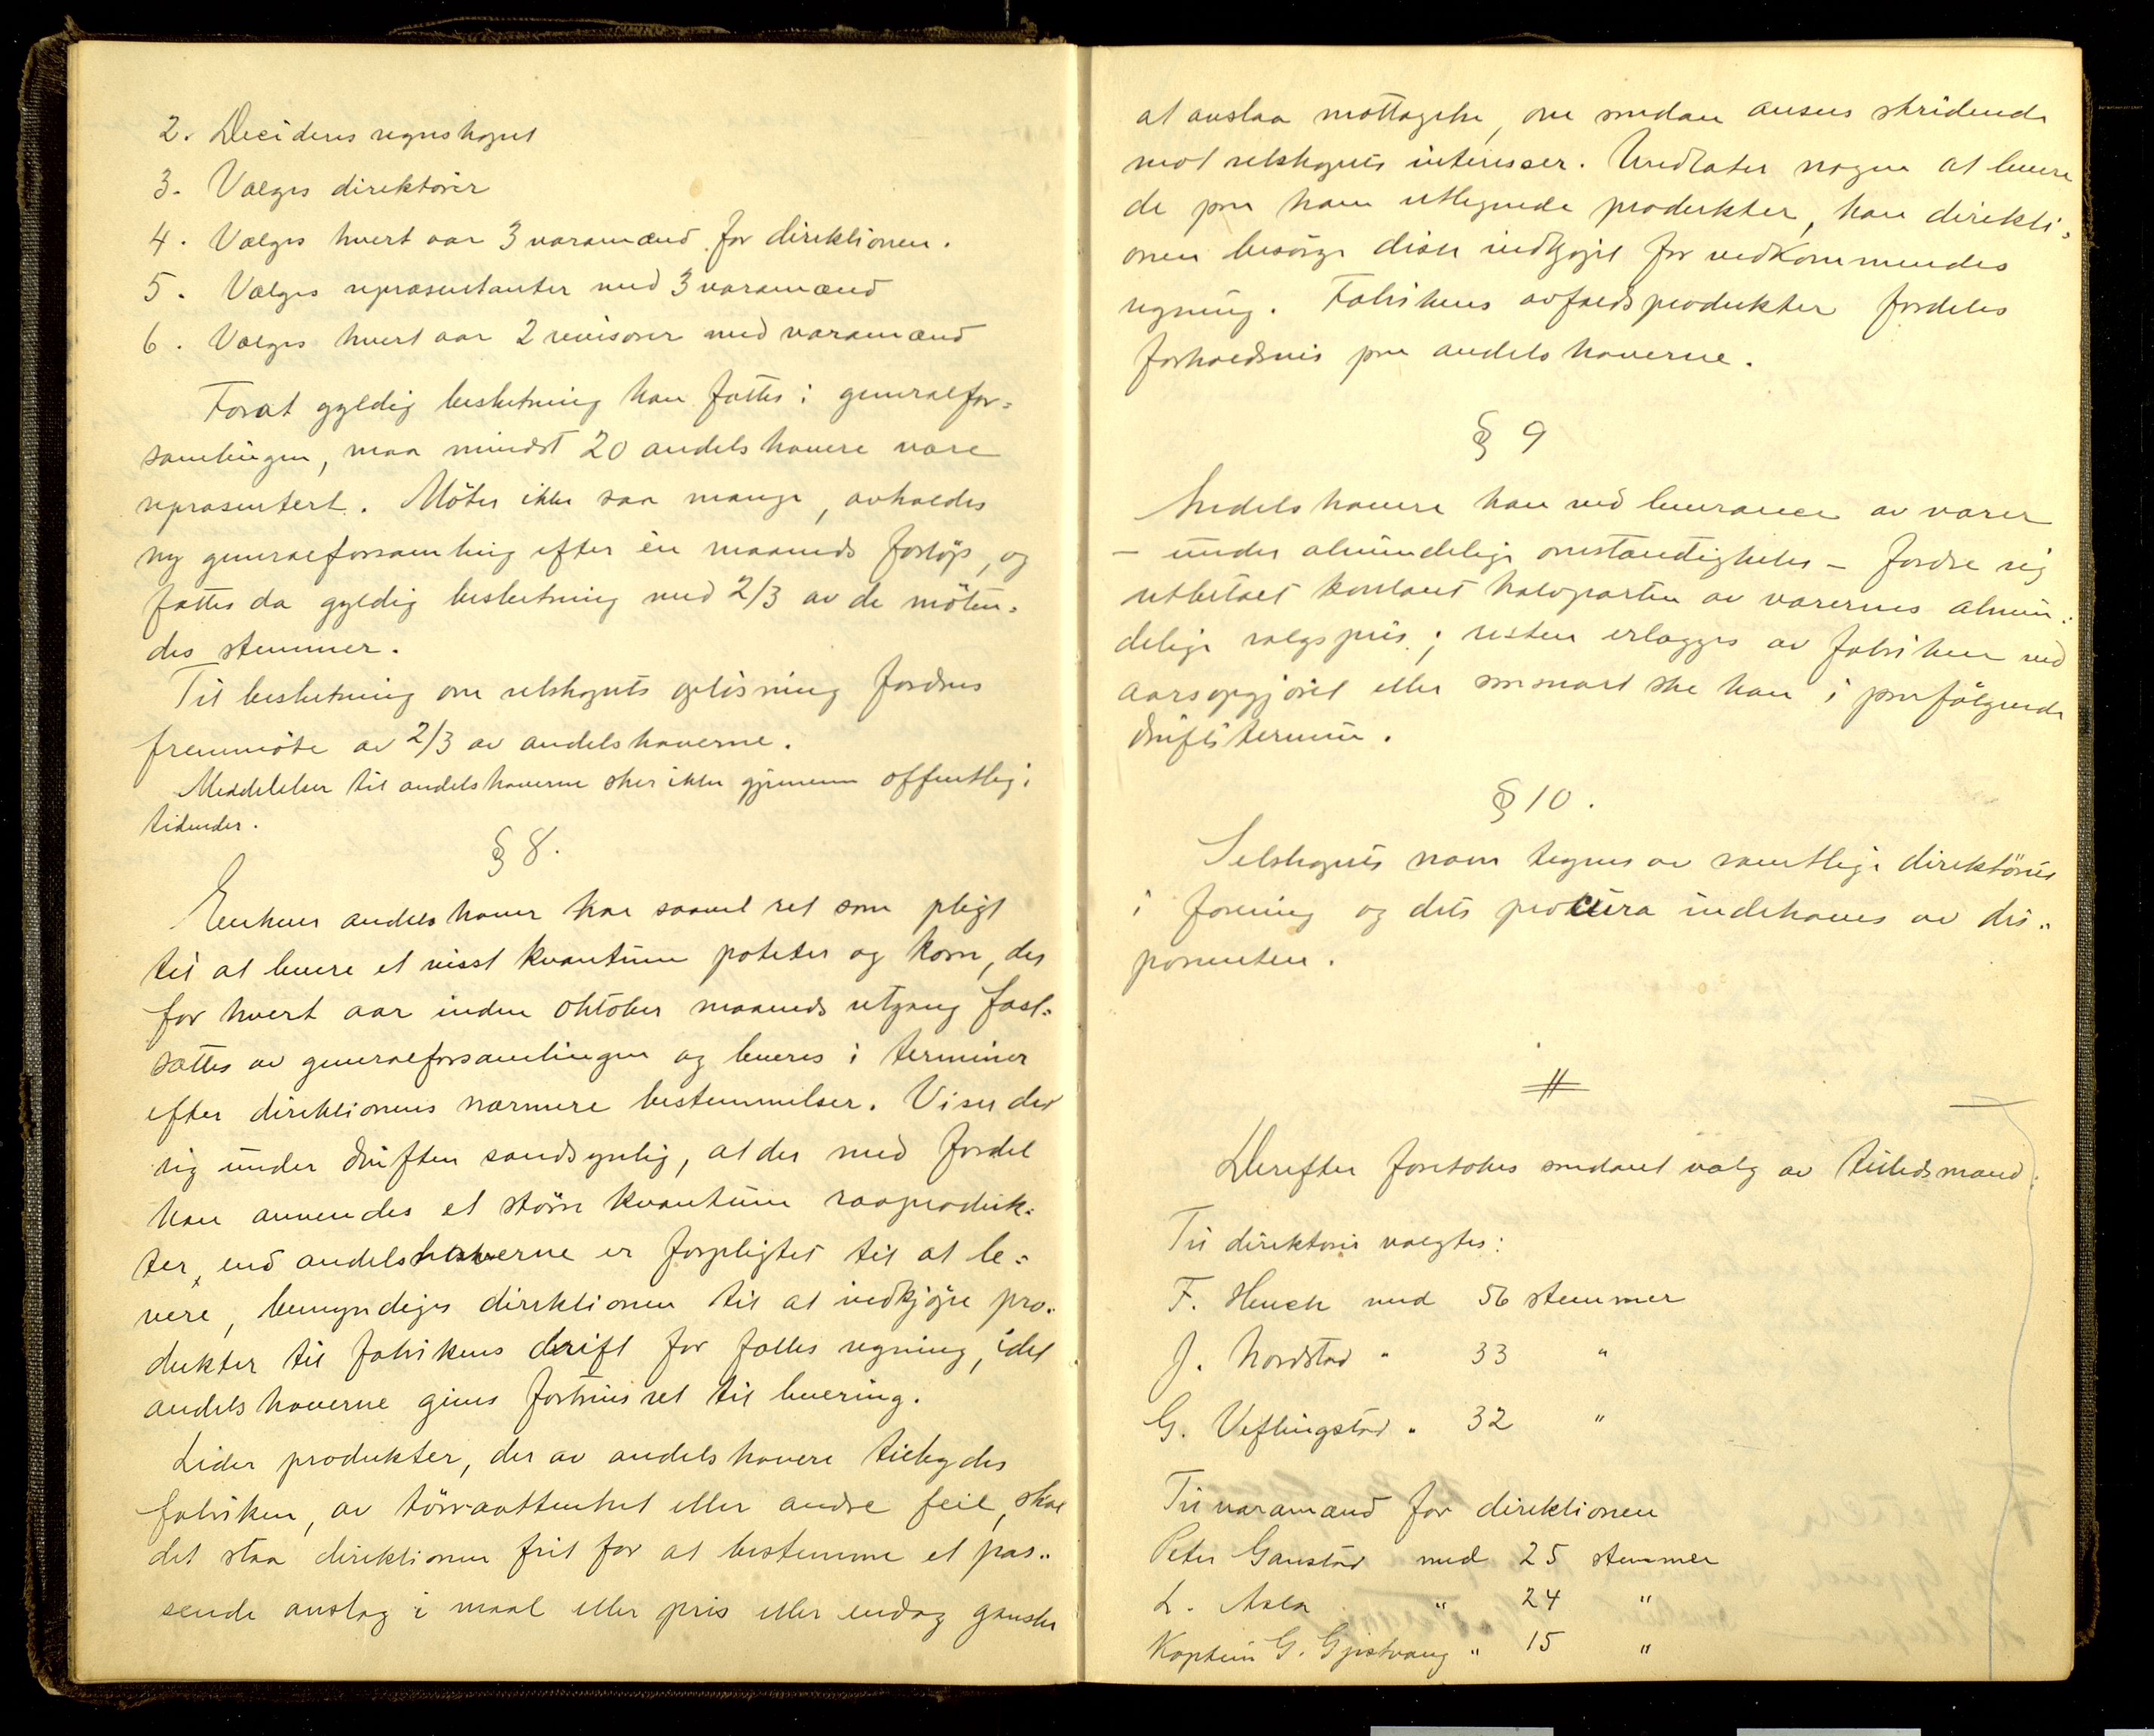 2. Decideres regnskapet
3. Vælges direktører
4. Vælges hvert aar 3 varamænd for direktionen.
5. Vælges repræsentanter med 3 varamænd
6. Vælges hvert aar 2 revisorer med varamænd
Forat gyldig beslutning kan fattes i generalfor=
samlingen, maa mindst 20 andelshavere være
repræsentert. Möter ikke saa mange, avholdes
ny generalforsamling efter én maaneds forlöp, og
fattes da gyldig beslutning med 2/3 av de möten=
des stemmer.
Til beslutning om selskapets oplösning fordres
fremmöte av 2/3 av andelshaverne.
Meddelelser til andelshaverne sker ikke gjennem offentlige
tidender.
§ 8.
Enhver andelshaver har saavel ret som pligt
til at levere et visst kvantum poteter og korn, der
for hvert aar inden oktober maaneds utgang fast=
sættes av generalforsamlingen og leveres i terminer
efter direktionens nærmere bestemmelser. Viser det
sig under driften sandsynlig, at der med fordel
kan anvendes et större kvantum raaproduk=
ter, end andelshaverne er forpligtet til at le=
vere, bemyndiges direktionen til at indkjöpe pro=
dukter til fabrikens drift for fælles regning, idet
andelshaverne gives fortrinsret til levering.
Lider produkter, der av andelshavere tilbydes
fabriken, av törraattenhet eller andre feil, skal
det staa direktionen frit for at bestemme et pas=
sende avslag i maal eller pris eller endog ganske
at avslaa mottagelse, om saadan ansees stridende
mot selskapets interesser. Undlater nogen at levere
de paa ham utlignede produkter, kan direkti=
onen besörge disse indkjöpt for vedkommendes
regning. Fabrikens avfaldsprodukter fordeles
forholdsvis paa andelshaverne.
§ 9
Andelshavere kan ved leverance av varer
– under almindelige omstændigheter – fordre sig
utbetalt kontant halvparten av varernes almin=
delige salgspris; resten erlægges av fabriken ved
aarsopgjöret eller saasnart ske kan i paafölgende
driftstermin.
§ 10.
Selskapets navn tegnes av samtlige direktörer
i forening og dets procura indehaves av dis=
ponenten.
Derefter foretokes saadant valg av tillidsmænd:
Til direktörer valgtes:
F. Heuch med 56 stemmer
J. Nordstad " 33 "
G. Veflingstad " 32 "
Til varamænd for direktionen
Peter Gaustad med 25 stemmer
L. Aala " 24 "
Kaptein G. Gjestvang " 15 "